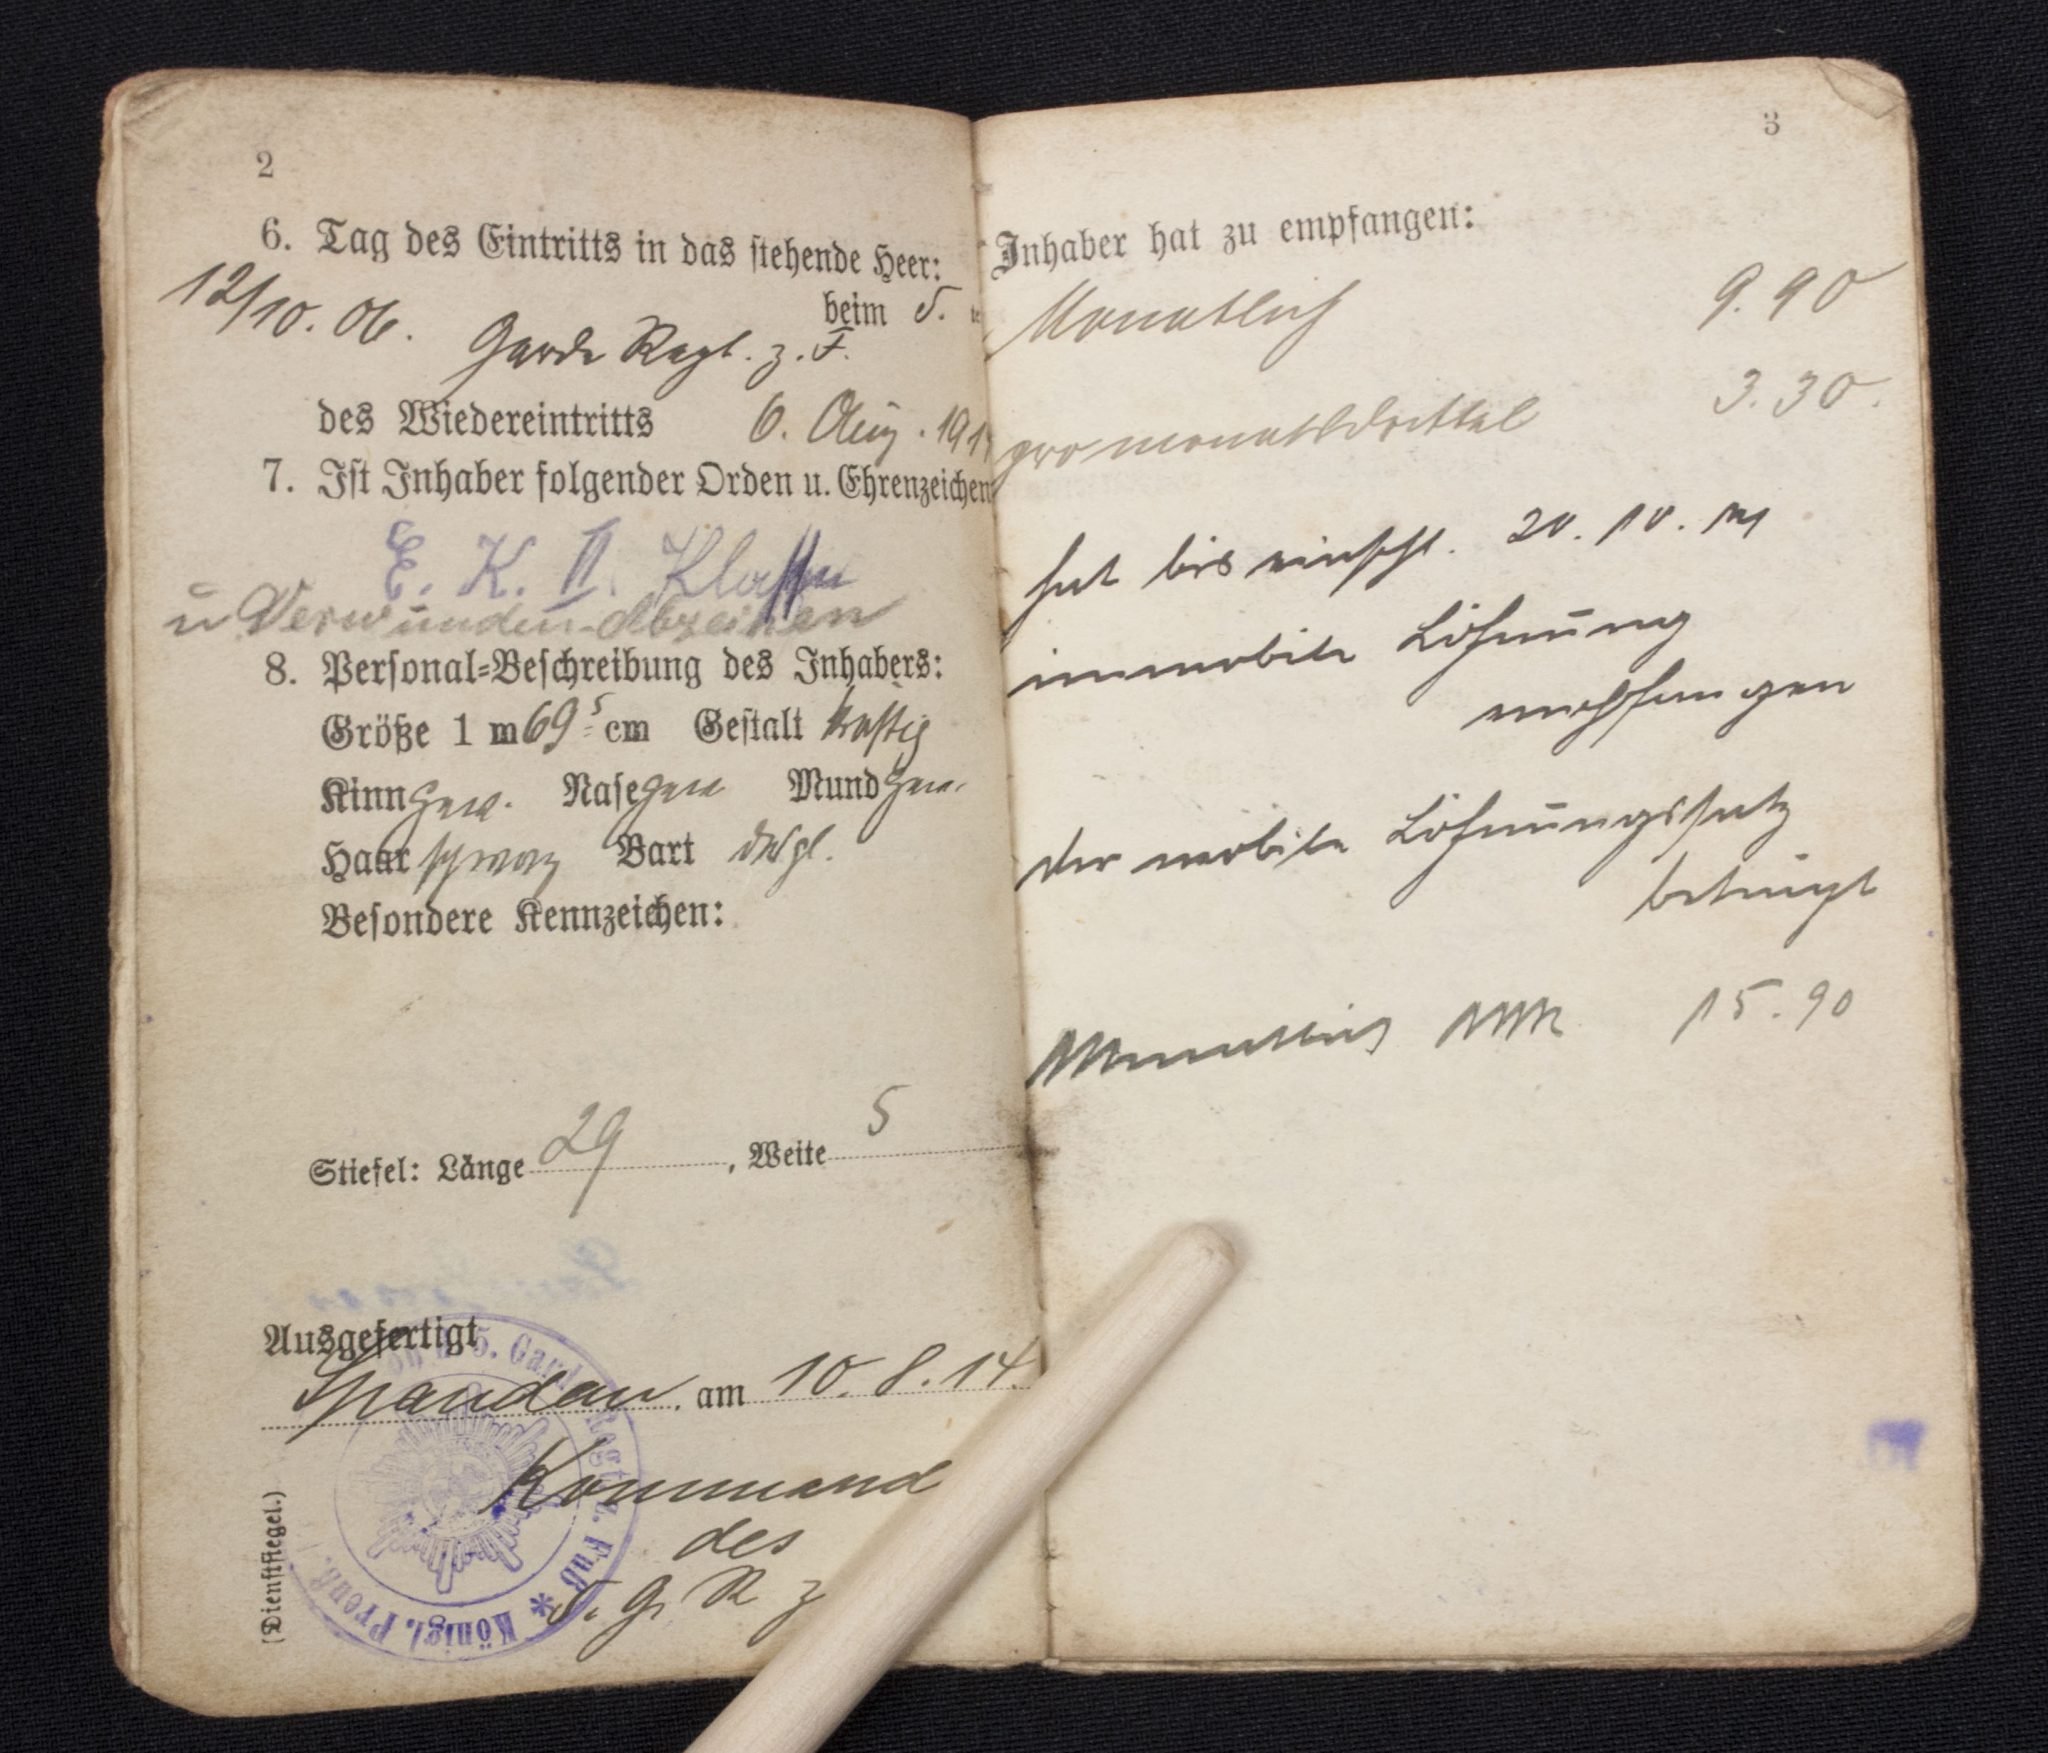 2
6. Tag des Eintritts in das stehende Heer:
12/10. 06. beim 5.
Garde Regt. z. F.
des Wiedereintritts 6. Aug. 191
7. Ist Inhaber folgender Orden u. Ehrenzeichen
E. K. II. Klasse
u Verwunden-Abzeichen
8. Personal-Beschreibung des Inhabers:
Größe 1 m 69 5 cm Gestalt kräftig
Kinn gew. Nase gew Mund gew.
Haar schwarz Bart desgl.
Besondere Kennzeichen:
Stiefel: Länge 29, Weite 5
Ausgefertigt
Spandau, am 10. 8. 14.
Kommand
des
5. G. R z
(Dienstsiegel.)
5. Garde Regt. z. Fuß * Königl. Preuß.
3
Inhaber hat zu empfangen:
Monatlich 9.90
pro monatsdrittel 3.30.
hat bis einschl. 20. 10. 14
immobile Löhnung
empfangen
der mobile Löhnungssatz
beträgt
Monatlich 15.90